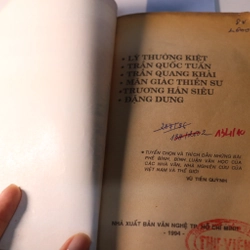 • LÝ THƯỜNG KIỆT
• TRẦN QUỐC TUẤN
• TRẦN QUANG KHẢI
• MÃN GIÁC THIỀN SƯ
• TRƯƠNG HÁN SIÊU
• ĐẶNG DUNG
• TUYỂN CHỌN VÀ TRÍCH DẪN NHỮNG BÀI
PHÊ BÌNH, BÌNH LUẬN VĂN HỌC CỦA
CÁC NHÀ VĂN, NGHIÊN CỨU CỦA
VIỆT NAM VÀ THẾ GIỚI
VŨ TIẾN QUỲNH
NHÀ XUẤT BẢN VĂN NGHỆ TP. HỒ CHÍ MINH
- 1994 -